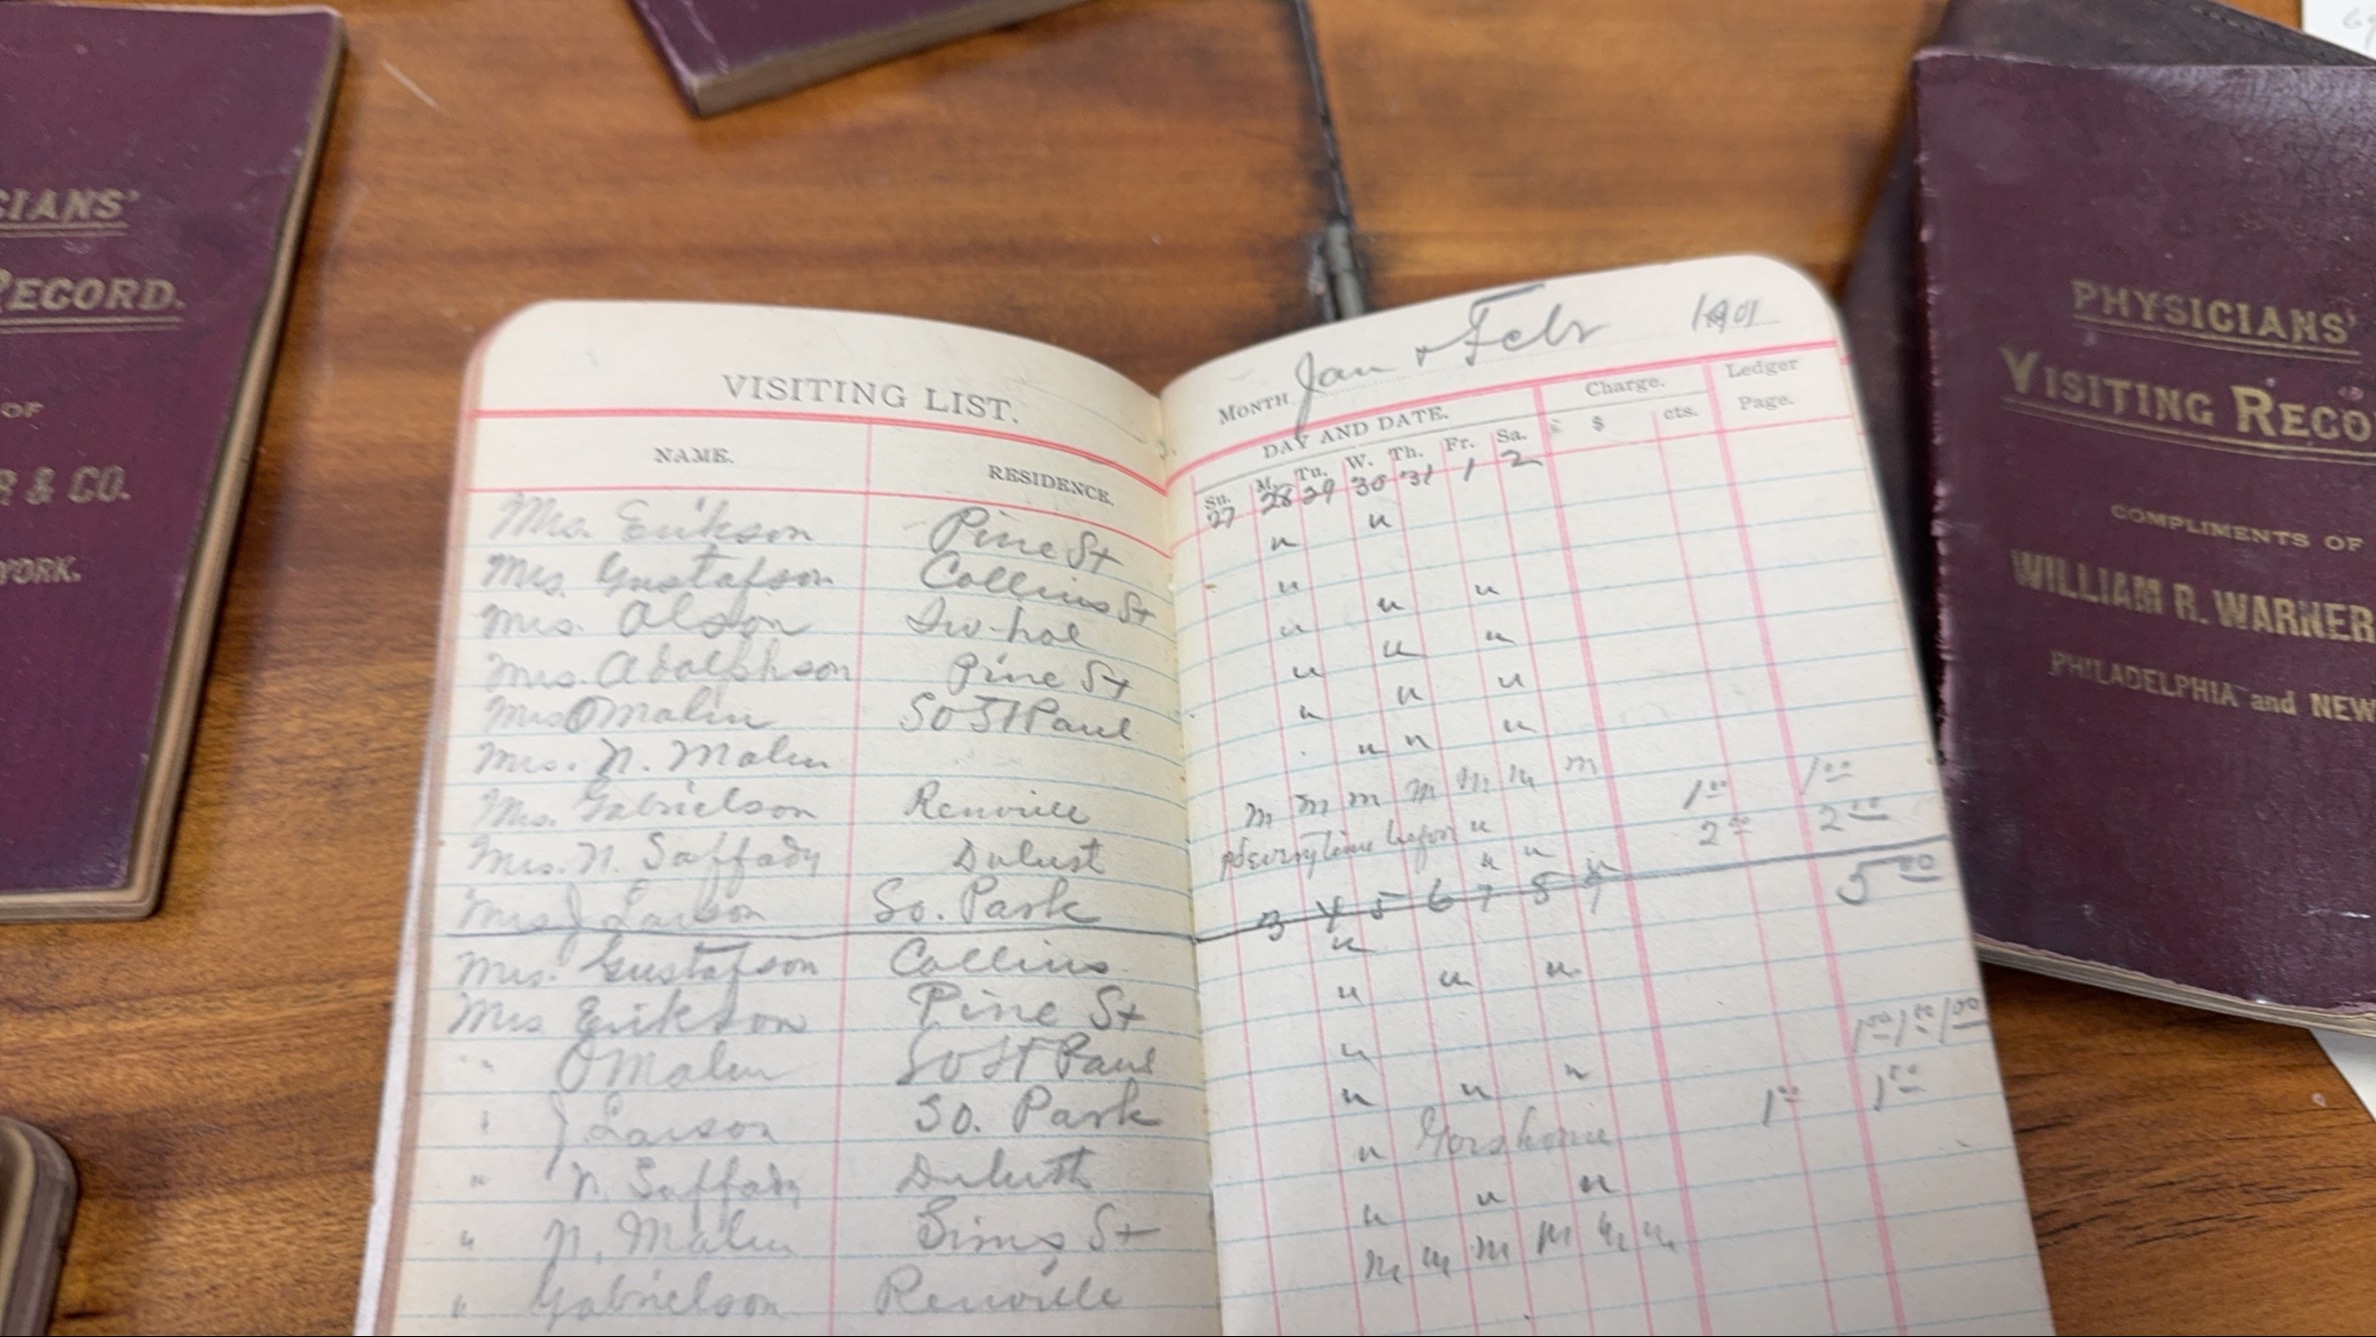 CIANS'
RECORD.
OF
R & CO.
YORK.
VISITING LIST.
NAME. RESIDENCE.
Mrs. Erikson Pine St
Mrs. Gustafson Collins St
Mrs. Olson Ivo-hoe
Mrs. Adolphson Pine St
Mrs O Malin So St Paul
Mrs. N. Malin
Mrs. Gabrielson Renville
Mrs. N. Saffady Dulust
Mrs J Larson So. Park
Mrs. Gustafson Collins
Mrs Erikson Pine St
" O Malin So St Paul
" J. Larson So. Park
" N. Saffady Duluth
" N. Malin Sims St
" Gabrielson Renville
MONTH. Jan + Febr 1901
DAY AND DATE. Charge. Ledger
Su. M. Tu. W. Th. Fr. Sa. $ cts. Page.
27 28 29 30 31 1 2
u u
u
u u u
u u u
u u u
u u u
m m m m m m m
u 1 00 1 00
u u u 2 00 2 00
3 4 5 6 7 8 9 5 00
u
u u u
u 1 00 1 00 1 00
u u u
u Goes home 1 00 1 00
u u u
m m m m m m
PHYSICIANS'
VISITING RECO
COMPLIMENTS OF
WILLIAM R. WARNER
PHILADELPHIA and NEW